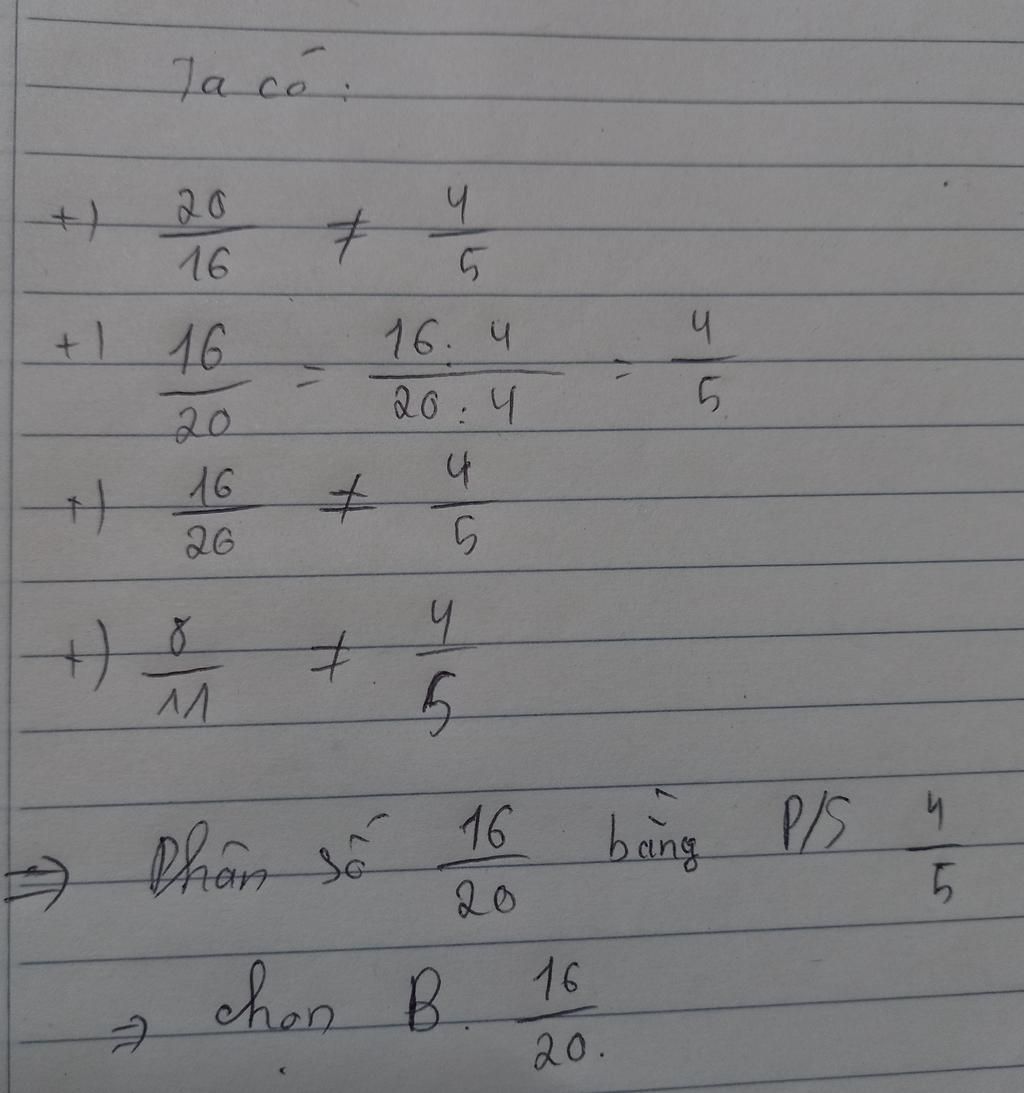 Ta có:
+) 20/16 ≠ 4/5
+) 16/20 = 16:4/20:4 = 4/5
+) 16/26 ≠ 4/5
+) 8/11 ≠ 4/5
⇒ Phân số 16/20 bằng P/S 4/5
⇒ chọn B. 16/20.